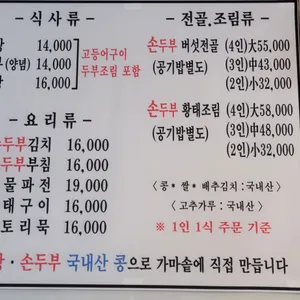 - 식 사 류 -
14,000
(양념) 14,000
16,000
고등어구이
두부조림 포함
- 요 리 류 -
두부김치 16,000
두부부침 16,000
물파전 19,000
태구이 16,000
토리묵 16,000
- 전골.조림류 -
손두부 버섯전골 (4인)大55,000
(공기밥별도) (3인)中43,000
(2인)小32,000
손두부 황태조림 (4인)大58,000
(공기밥별도) (3인)中48,000
(2인)小32,000
〈콩* 쌀* 배추김치 : 국내산〉
〈고추가루 : 국내산〉
※ 1인 1식 주문 기준
· 손두부 국내산 콩으로 가마솥에 직접 만듭니다